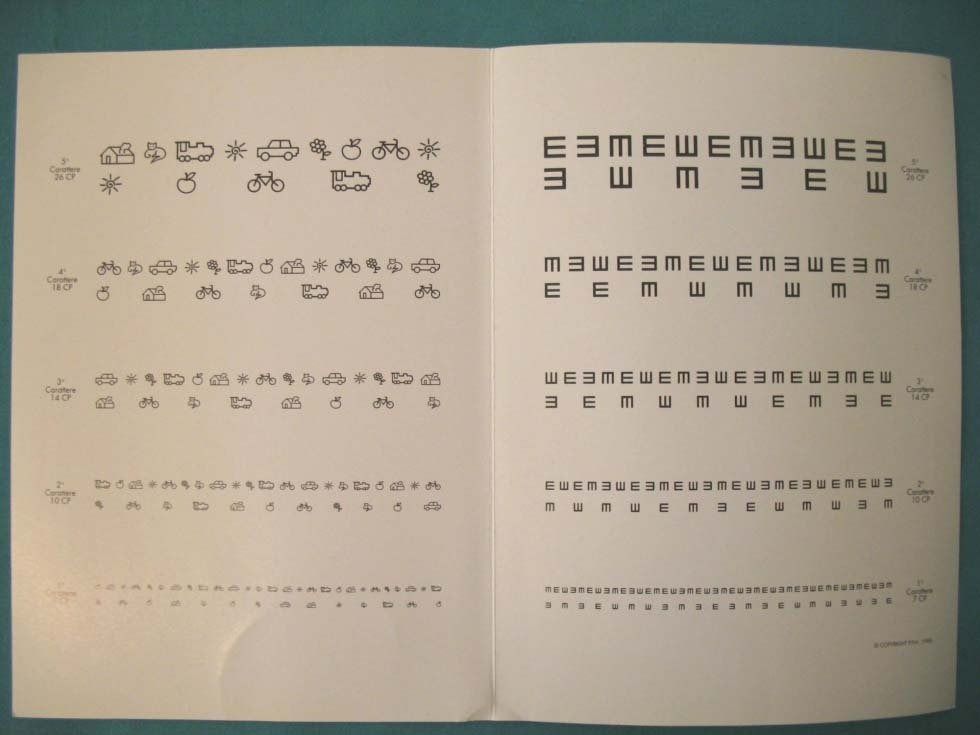 5°
Carattere
26 CP
4°
Carattere
18 CP
3°
Carattere
14 CP
2°
Carattere
10 CP
5°
Carattere
26 CP
4°
Carattere
18 CP
3°
Carattere
14 CP
2°
Carattere
10 CP
1°
Carattere
7 CP
© COPYRIGHT